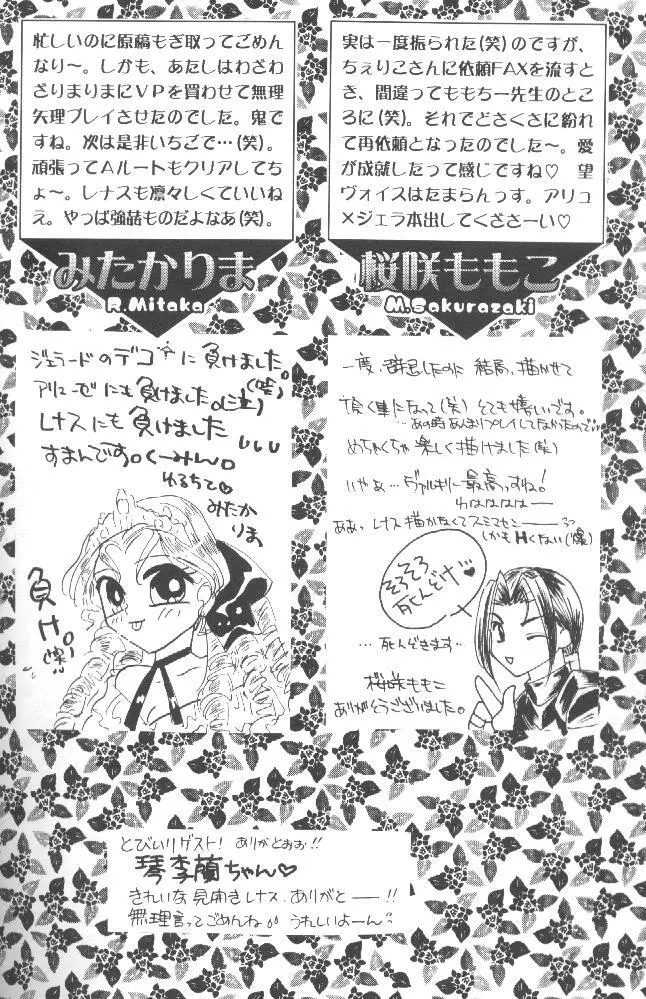 忙しいのに原稿もぎ取ってごめん
なり～。しかも、あたしはわざわ
ざまりまりにVPを買わせて無理
矢理プレイさせたのでした。鬼で
すね。次は是非いちごで…(笑)。
頑張ってAルートもクリアしてち
ょ～。レナスも凛々しくていいね
ぇ。やっぱ強気ものだよなあ(笑)。
みたかりま
R.Mitaka
ジェラードのデコに負けました。
アリューゼにも負けました。(泣)
レナスにも負けました
すまんです。くーみん。
ゆるちて♡
みたか
りま
負け。
実は一度振られた(笑)のですが、
ちぇりこさんに依頼FAXを流すと
き、間違ってももちー先生のところ
に(笑)。それでどさくさに紛れ
て再依頼となったのでした～。愛
が成就したって感じですね♡ 望
ヴォイスはたまらんっす。アリュ
×ジェラ本出してくださーい♡
桜咲ももこ
M.Sakurazaki
一度、辞退したのに結局、描かせて
頂く事になって(笑)とても嬉しいです。
あの時あんまりプレイしてなかったので
めちゃくちゃ楽しく描けました(笑)
いやぁ…ヴァルキリに最高っすね!
わはははは―
ああ、レナス描かなくてスミマセン――
しかもHくない(爆)
そろそろ
死んどけ♥
…死んどきます…
桜咲ももこ
ありがとうございました。
とびいりゲスト! ありがとおお!!
琴李蘭ちゃん♡
きれいな見開きレナス、ありがと――!!
無理言ってごめんね うれしいよーん